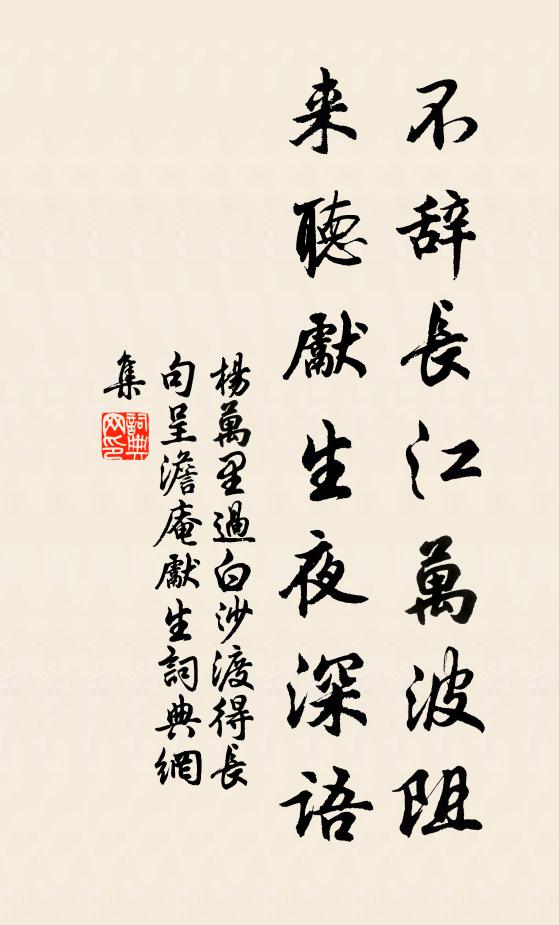 不辞長江萬波阻
来聽獻生夜深語
楊萬里過白沙渡得長
句呈澹庵獻生詞典網
集
詞典
网印